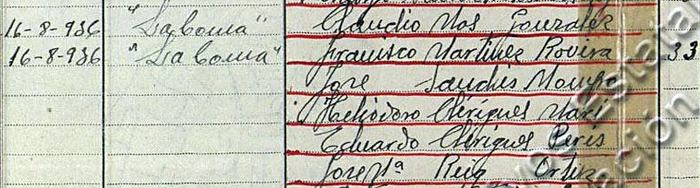 16-8-936 "La Coma" Claudio Mas Gonzalez
16-8-936 "La Coma" Francisco Martinez Rovira 33
Jose Sanchis
Heliodoro Clerigues Mari
Eduardo Clerigues Peris
Jose Mª Reig